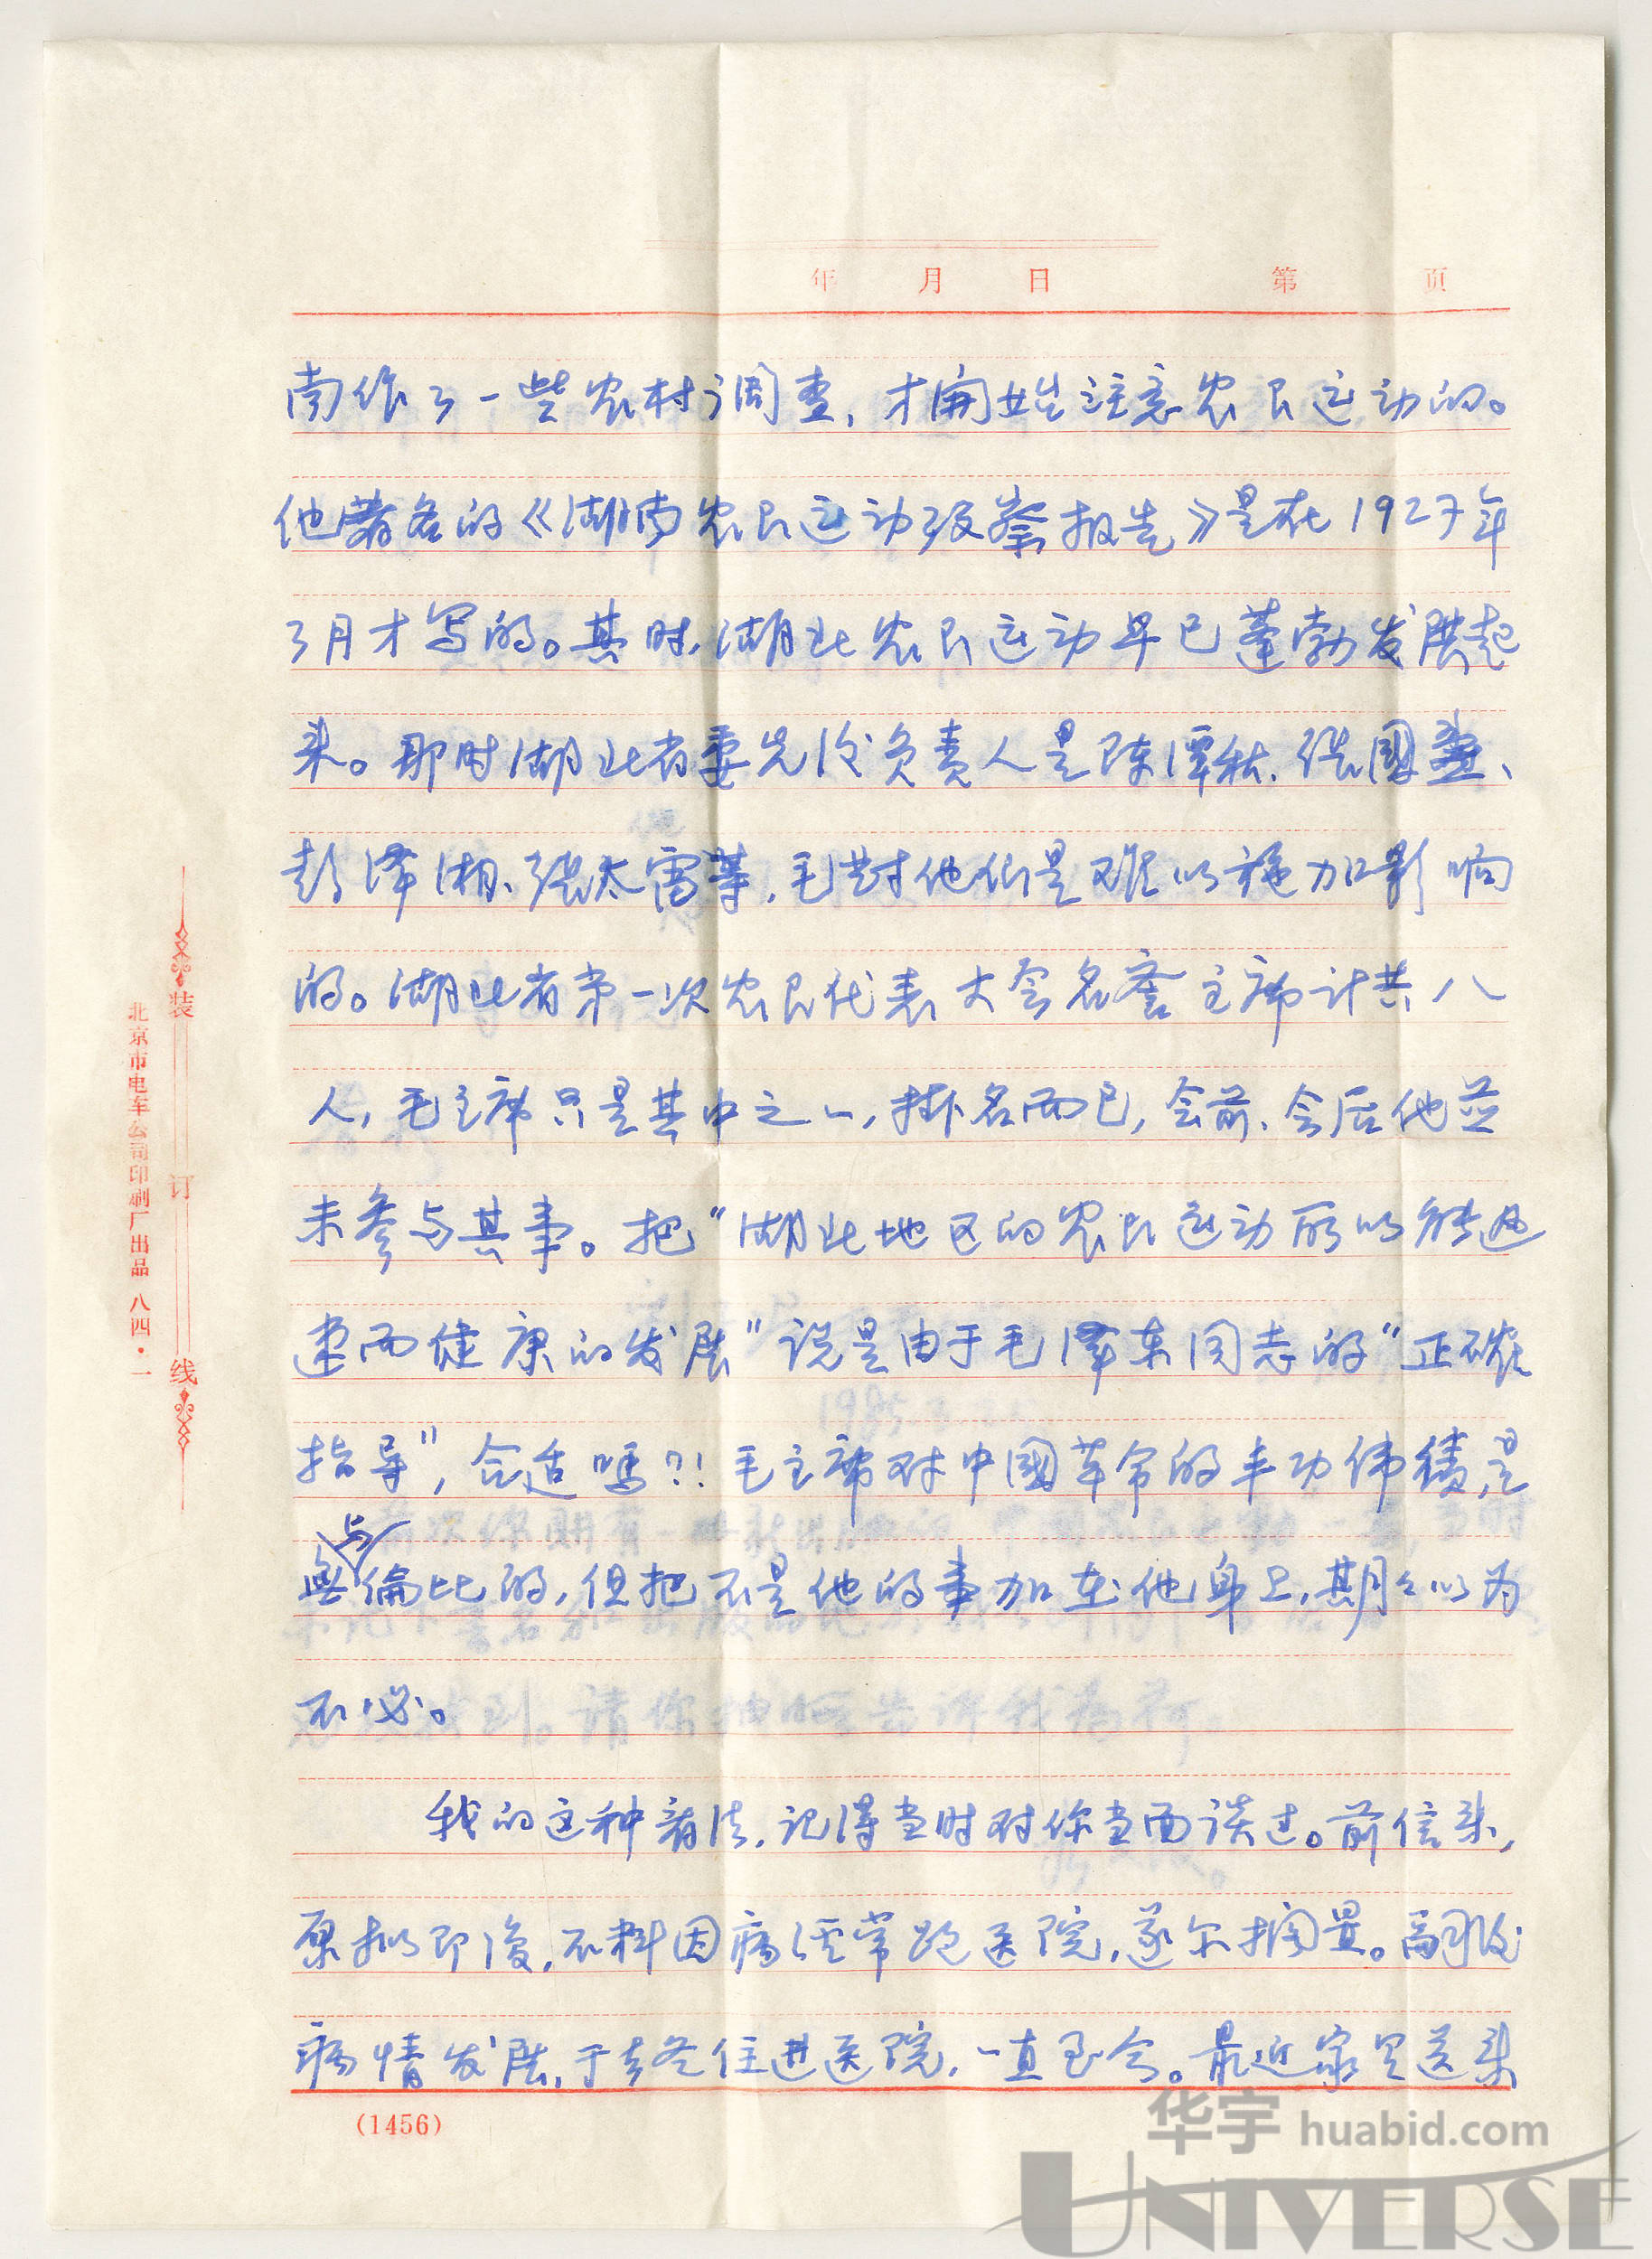 年 月 日 第 页
南作了一些农村调查，才開始注意农民运动的。
他著名的《湖南农民运动攷察报告》是在1927年
3月才写的。其时，湖北农民运动早已蓬勃发展起
来。那时湖北省委先后负责人是陈潭秋、张國燾、
彭泽湘、张太雷等，毛对他们是难以施加影响
的。湖北省第一次农民代表大会名誉主席计共八
人，毛主席只是其中之一，掛名而已，会前、会后他並
未参与其事。把“湖北地区的农民运动所以能迅
速而健康的发展”说是由于毛泽东同志的“正确
指导”，合适嗎？！毛主席对中國革命的丰功伟績，是
無与倫比的，但把不是他的事加在他身上，期期以为
不必。
我的这种看法，记得当时对你当面谈过。前信来，
原拟即復，不料因病经常跑医院，遂尔搁置。嗣后
病情发展，于去冬住进医院，一直至今。最近家里送来
装
订
线
北京市电车公司印刷厂出品 八四·一
(1456)
华宇 huabid.com
UNIVERSE